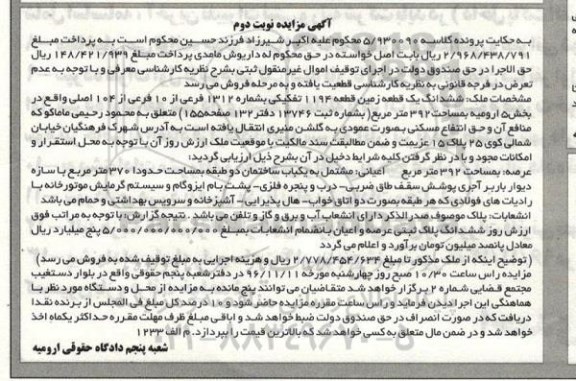 آگهی مزایده نوبت دوم
به حکایت پرونده کلاسه 5/930090 محکوم علیه اکبر شیرزاد فرزند حسین محکوم است به پرداخت مبلغ
2/968/438/791 ریال بابت اصل خواسته در حق محکوم له داریوش مامدی پرداخت مبلغ 148/421/939 ریال بابت
حق الاجرا در حق صندوق دولت در اجرای توقیف اموال غیرمنقول ثبتی بشرح نظریه کارشناسی معرفی و با توجه به عدم
تعرض در فرجه قانونی به نظریه کارشناسی قطعیت یافته و به مرحله فروش می رسد
مشخصات ملک: ششدانگ یک قطعه زمین قطعه 1194 تفکیکی بشماره 1312 فرعی از 10 فرعی از 104 اصلی واقع در
بخش 5 ارومیه بمساحت 392 متر مربع (بشماره ثبت 13746 دفتر 132 صفحه 155) متعلق به محمود رحیمی ماماکو که
منافع آن و حق انتفاع مسکنی بصورت عمودی به گلشن منیری انتقال یافته است به آدرس شهرک فرهنگیان خیابان
شمالی کوی 25 پلاک 15 عزیمت و ضمن مطالبقت سند مالکیت با موقعیت ملک ارزش روز آن با توجه به محل استقرار و
امکانات موجود و با در نظر گرفتن کلیه شرایط دخیل در آن بشرح ذیل ارزیابی گردید:
عرصه: بمساحت 392 متر مربع اعیانی: مشتمل به یکباب ساختمان دو طبقه بمساحت حدودا 370 متر مربع با سازه
دیوار باربر آجری پوشش سقف طاق ضربی- درب و پنجره فلزی- پشت بام ایزوگام و سیستم گرمایش موتورخانه با
رادیات های فولادی که هر طبقه بصورت دو اتاق خواب- هال پذیرایی- آشپزخانه و سرویس بهداشتی و حمام می باشد
انشعابات: پلاک موصوف صدرالذکر دارای انشعاب آب و برق و گاز و تلفن می باشد. نتیجه گزارش: با توجه به مراتب فوق
ارزش روز ششدانگ پلاک ثبتی عرصه و اعیان بانضمام انشعابات بمبلغ 5/000/000/000 پنج میلیارد ریال
معادل پانصد میلیون تومان برآورد و اعلام می گردد
(توضیح اینکه از ملک مذکور تا مبلغ 2/778/454/634 ریال و هزینه اجرایی به مبلغ توقیف شده به فروش می رسد)
مزایده راس ساعت 10/30 صبح روز چهارشنبه مورخه 96/11/11 در دفتر شعبه پنجم حقوقی واقع در بلوار دستغیب
مجتمع قضایی شماره 2 برگزار خواهد شد متقاضیان می توانند پنج مانده به مزایده از محل و دستگاه مورد نظر با
هماهنگی این اجرا دیدن فرماید و راس ساعت مقرره مزایده حاضر شود و 10 درصد کل مبلغ فی المجلس از برنده نقدا
دریافت که در صورت انصراف در حق صندوق دولت ضبط خواهد شد و اباقی مبلغ ظرف مهلت مقرره حداکثر یکماه اخذ
خواهد شد و در ضمن مال متعلق به کسی خواهد شد که بالاترین قیمت را بپردازد. م الف 1233
شعبه پنجم دادگاه حقوقی ارومیه